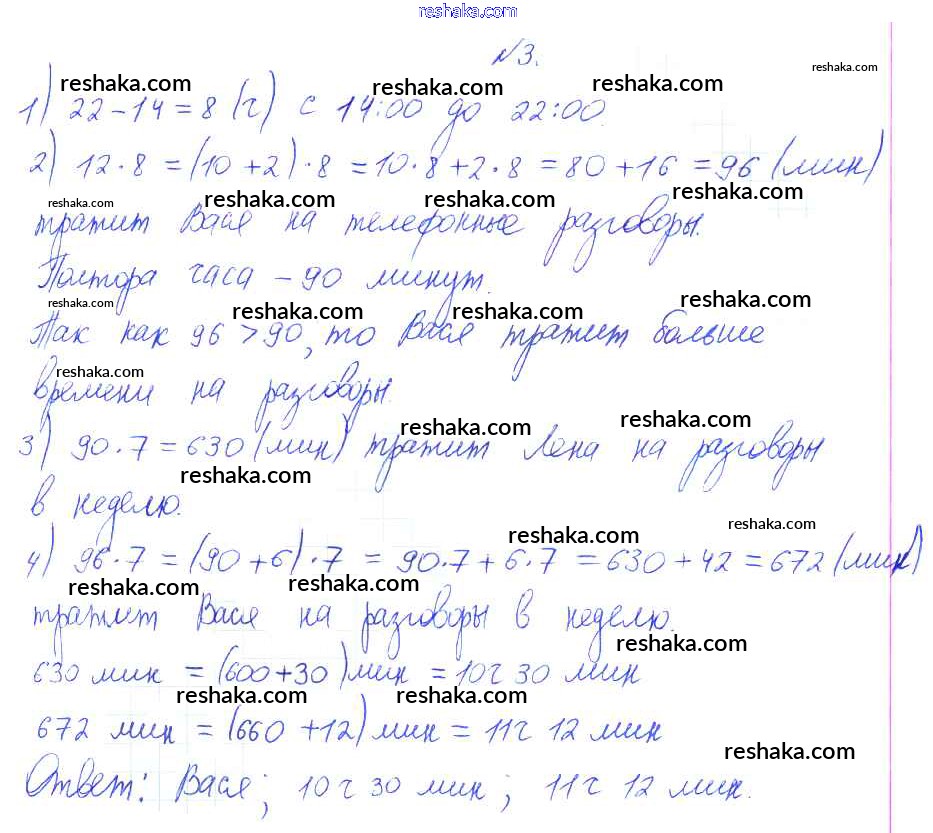 reshaka.com
№3.
reshaka.com reshaka.com reshaka.com reshaka.com
1) 22-14=8 (ч) с 14:00 до 22:00.
2) 12·8=(10+2)·8=10·8+2·8=80+16=96 (мин)
reshaka.com reshaka.com reshaka.com reshaka.com
тратит Вася на телефонные разговоры.
Полтора часа - 90 минут.
reshaka.com reshaka.com reshaka.com reshaka.com
Так как 96>90, то Вася тратит больше
reshaka.com
времени на разговоры.
reshaka.com reshaka.com
3) 90·7=630 (мин) тратит Лена на разговоры
reshaka.com
в неделю.
reshaka.com reshaka.com
4) 96·7=(90+6)·7=90·7+6·7=630+42=672 (мин)
reshaka.com reshaka.com
тратит Вася на разговоры в неделю.
reshaka.com
630 мин = (600+30) мин = 10ч 30 мин
reshaka.com reshaka.com
672 мин = (660+12) мин = 11ч 12 мин
reshaka.com
Ответ: Вася; 10ч 30 мин; 11ч 12 мин.